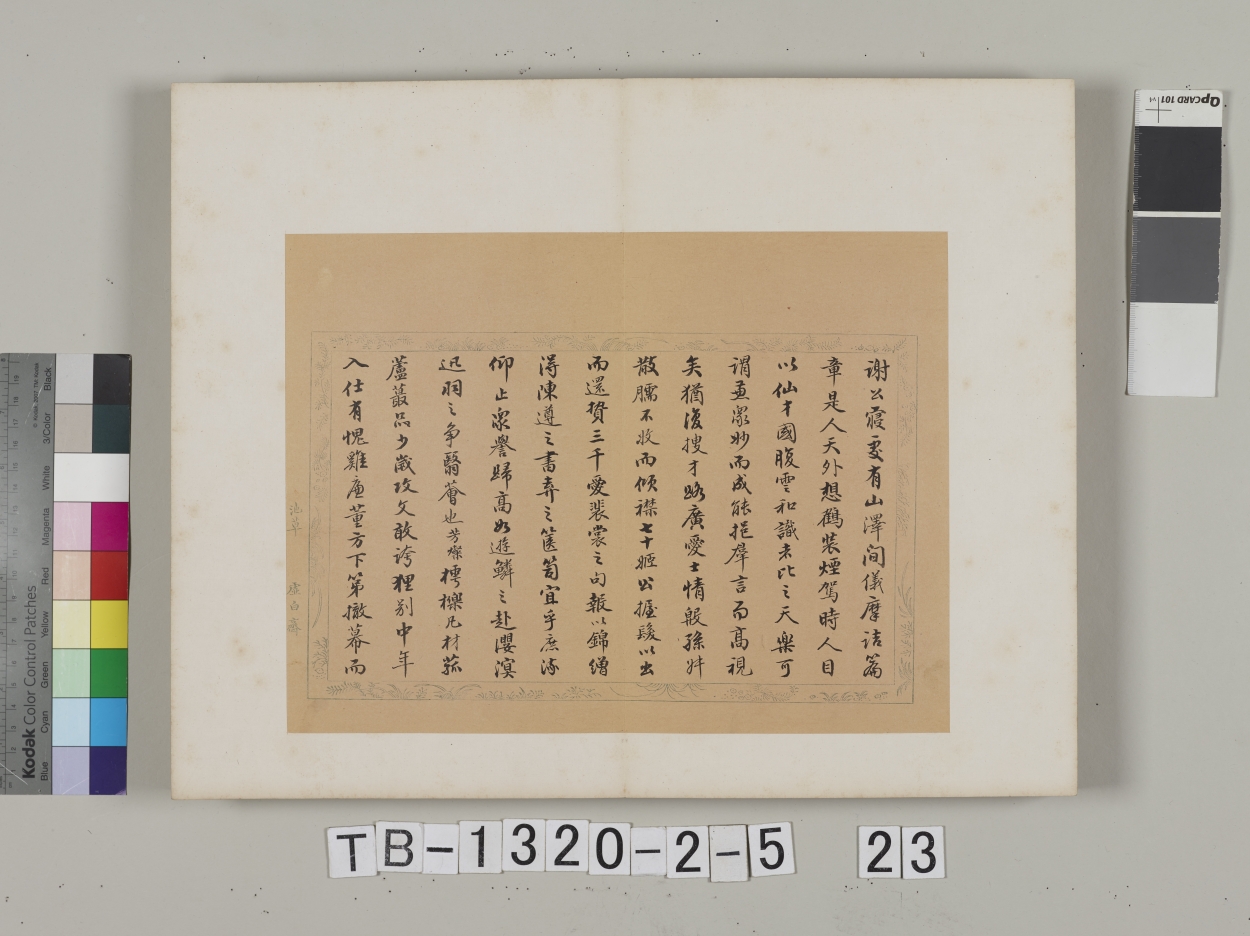 謝公寢處有山澤間儀摩詰篇
章是人天外想鶴裝煙駕時人目
以仙才國腹雲和識者比之天樂可
謂兼眾妙而成能挹羣言而高視
矣猶復搜才路廣愛士情殷孫舛
散臑不收而傾襟七十姬公握髮以出
而還贄三千愛裴裳之句報以錦繒
得陳遵之書弆之篋笥宜乎庶流
仰止眾譽歸高如遊鱗之赴瀴溟
迅羽之爭翳薈也芳燦樗櫟凡材菰
蘆蕞品少歲攻文敢誇狸別中年
入仕有愧雞廉董方下第撤幕而
池草
虛白齋
Kodak Color Control Patches
Blue
Cyan
Green
Yellow
Red
Magenta
White
3/Color
Black
QPCARD 101
TB-1320-2-5 23